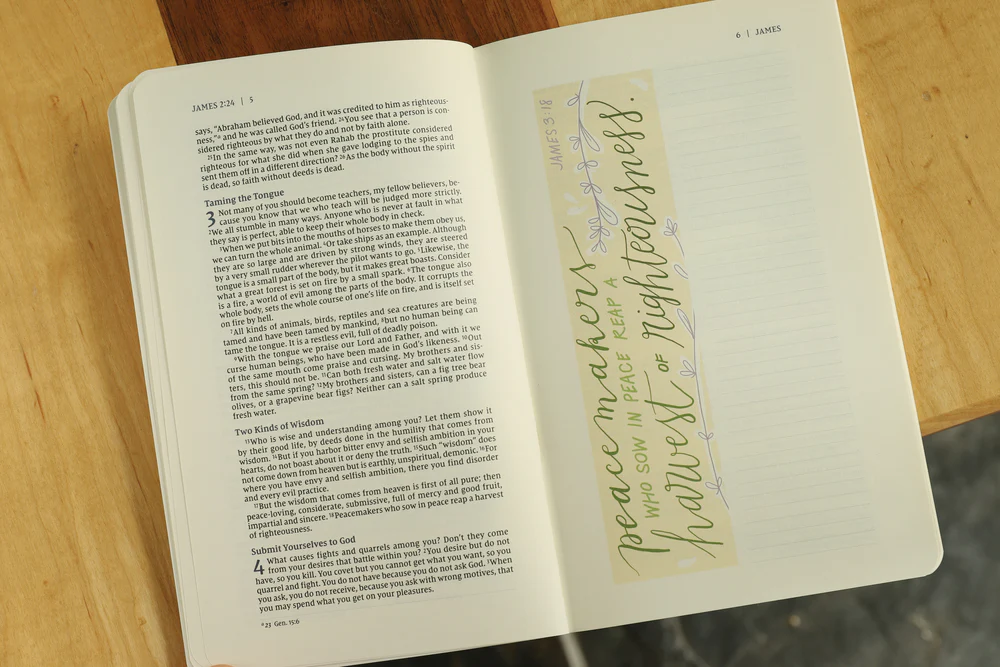 JAMES 2:24 | 5
says, "Abraham believed God, and it was credited to him as righteous-
ness,"ᵃ and he was called God's friend. ²⁴You see that a person is con-
sidered righteous by what they do and not by faith alone.
²⁵In the same way, was not even Rahab the prostitute considered
righteous for what she did when she gave lodging to the spies and
sent them off in a different direction? ²⁶As the body without the spirit
is dead, so faith without deeds is dead.
Taming the Tongue
3 Not many of you should become teachers, my fellow believers, be-
cause you know that we who teach will be judged more strictly.
²We all stumble in many ways. Anyone who is never at fault in what
they say is perfect, able to keep their whole body in check.
³When we put bits into the mouths of horses to make them obey us,
we can turn the whole animal. ⁴Or take ships as an example. Although
they are so large and are driven by strong winds, they are steered
by a very small rudder wherever the pilot wants to go. ⁵Likewise, the
tongue is a small part of the body, but it makes great boasts. Consider
what a great forest is set on fire by a small spark. ⁶The tongue also
is a fire, a world of evil among the parts of the body. It corrupts the
whole body, sets the whole course of one's life on fire, and is itself set
on fire by hell.
⁷All kinds of animals, birds, reptiles and sea creatures are being
tamed and have been tamed by mankind, ⁸but no human being can
tame the tongue. It is a restless evil, full of deadly poison.
⁹With the tongue we praise our Lord and Father, and with it we
curse human beings, who have been made in God's likeness. ¹⁰Out
of the same mouth come praise and cursing. My brothers and sis-
ters, this should not be. ¹¹Can both fresh water and salt water flow
from the same spring? ¹²My brothers and sisters, can a fig tree bear
olives, or a grapevine bear figs? Neither can a salt spring produce
fresh water.
Two Kinds of Wisdom
¹³Who is wise and understanding among you? Let them show it
by their good life, by deeds done in the humility that comes from
wisdom. ¹⁴But if you harbor bitter envy and selfish ambition in your
hearts, do not boast about it or deny the truth. ¹⁵Such "wisdom" does
not come down from heaven but is earthly, unspiritual, demonic. ¹⁶For
where you have envy and selfish ambition, there you find disorder
and every evil practice.
¹⁷But the wisdom that comes from heaven is first of all pure; then
peace-loving, considerate, submissive, full of mercy and good fruit,
impartial and sincere. ¹⁸Peacemakers who sow in peace reap a harvest
of righteousness.
Submit Yourselves to God
4 What causes fights and quarrels among you? Don't they come
from your desires that battle within you? ²You desire but do not
have, so you kill. You covet but you cannot get what you want, so you
quarrel and fight. You do not have because you do not ask God. ³When
you ask, you do not receive, because you ask with wrong motives, that
you may spend what you get on your pleasures.
ᵃ 23 Gen. 15:6
6 | JAMES
JAMES 3:18
peacemakers
WHO SOW IN PEACE REAP A
harvest OF righteousness.